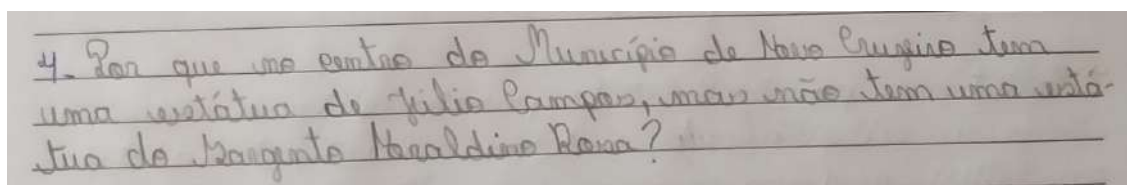 4- Por que no centro do Município de Novo Cruzeiro tem
uma estátua de Júlio Campos, mas não tem uma está-
tua do Sargento Heraldino Rosa?